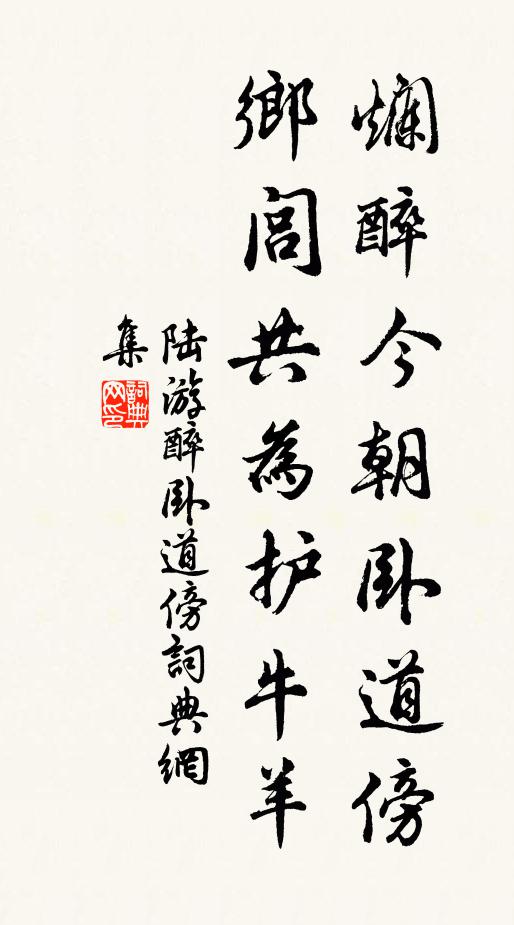 爛醉今朝卧道傍
鄉閭共為护牛羊
陆游醉卧道傍詞典網
集
詞典网印